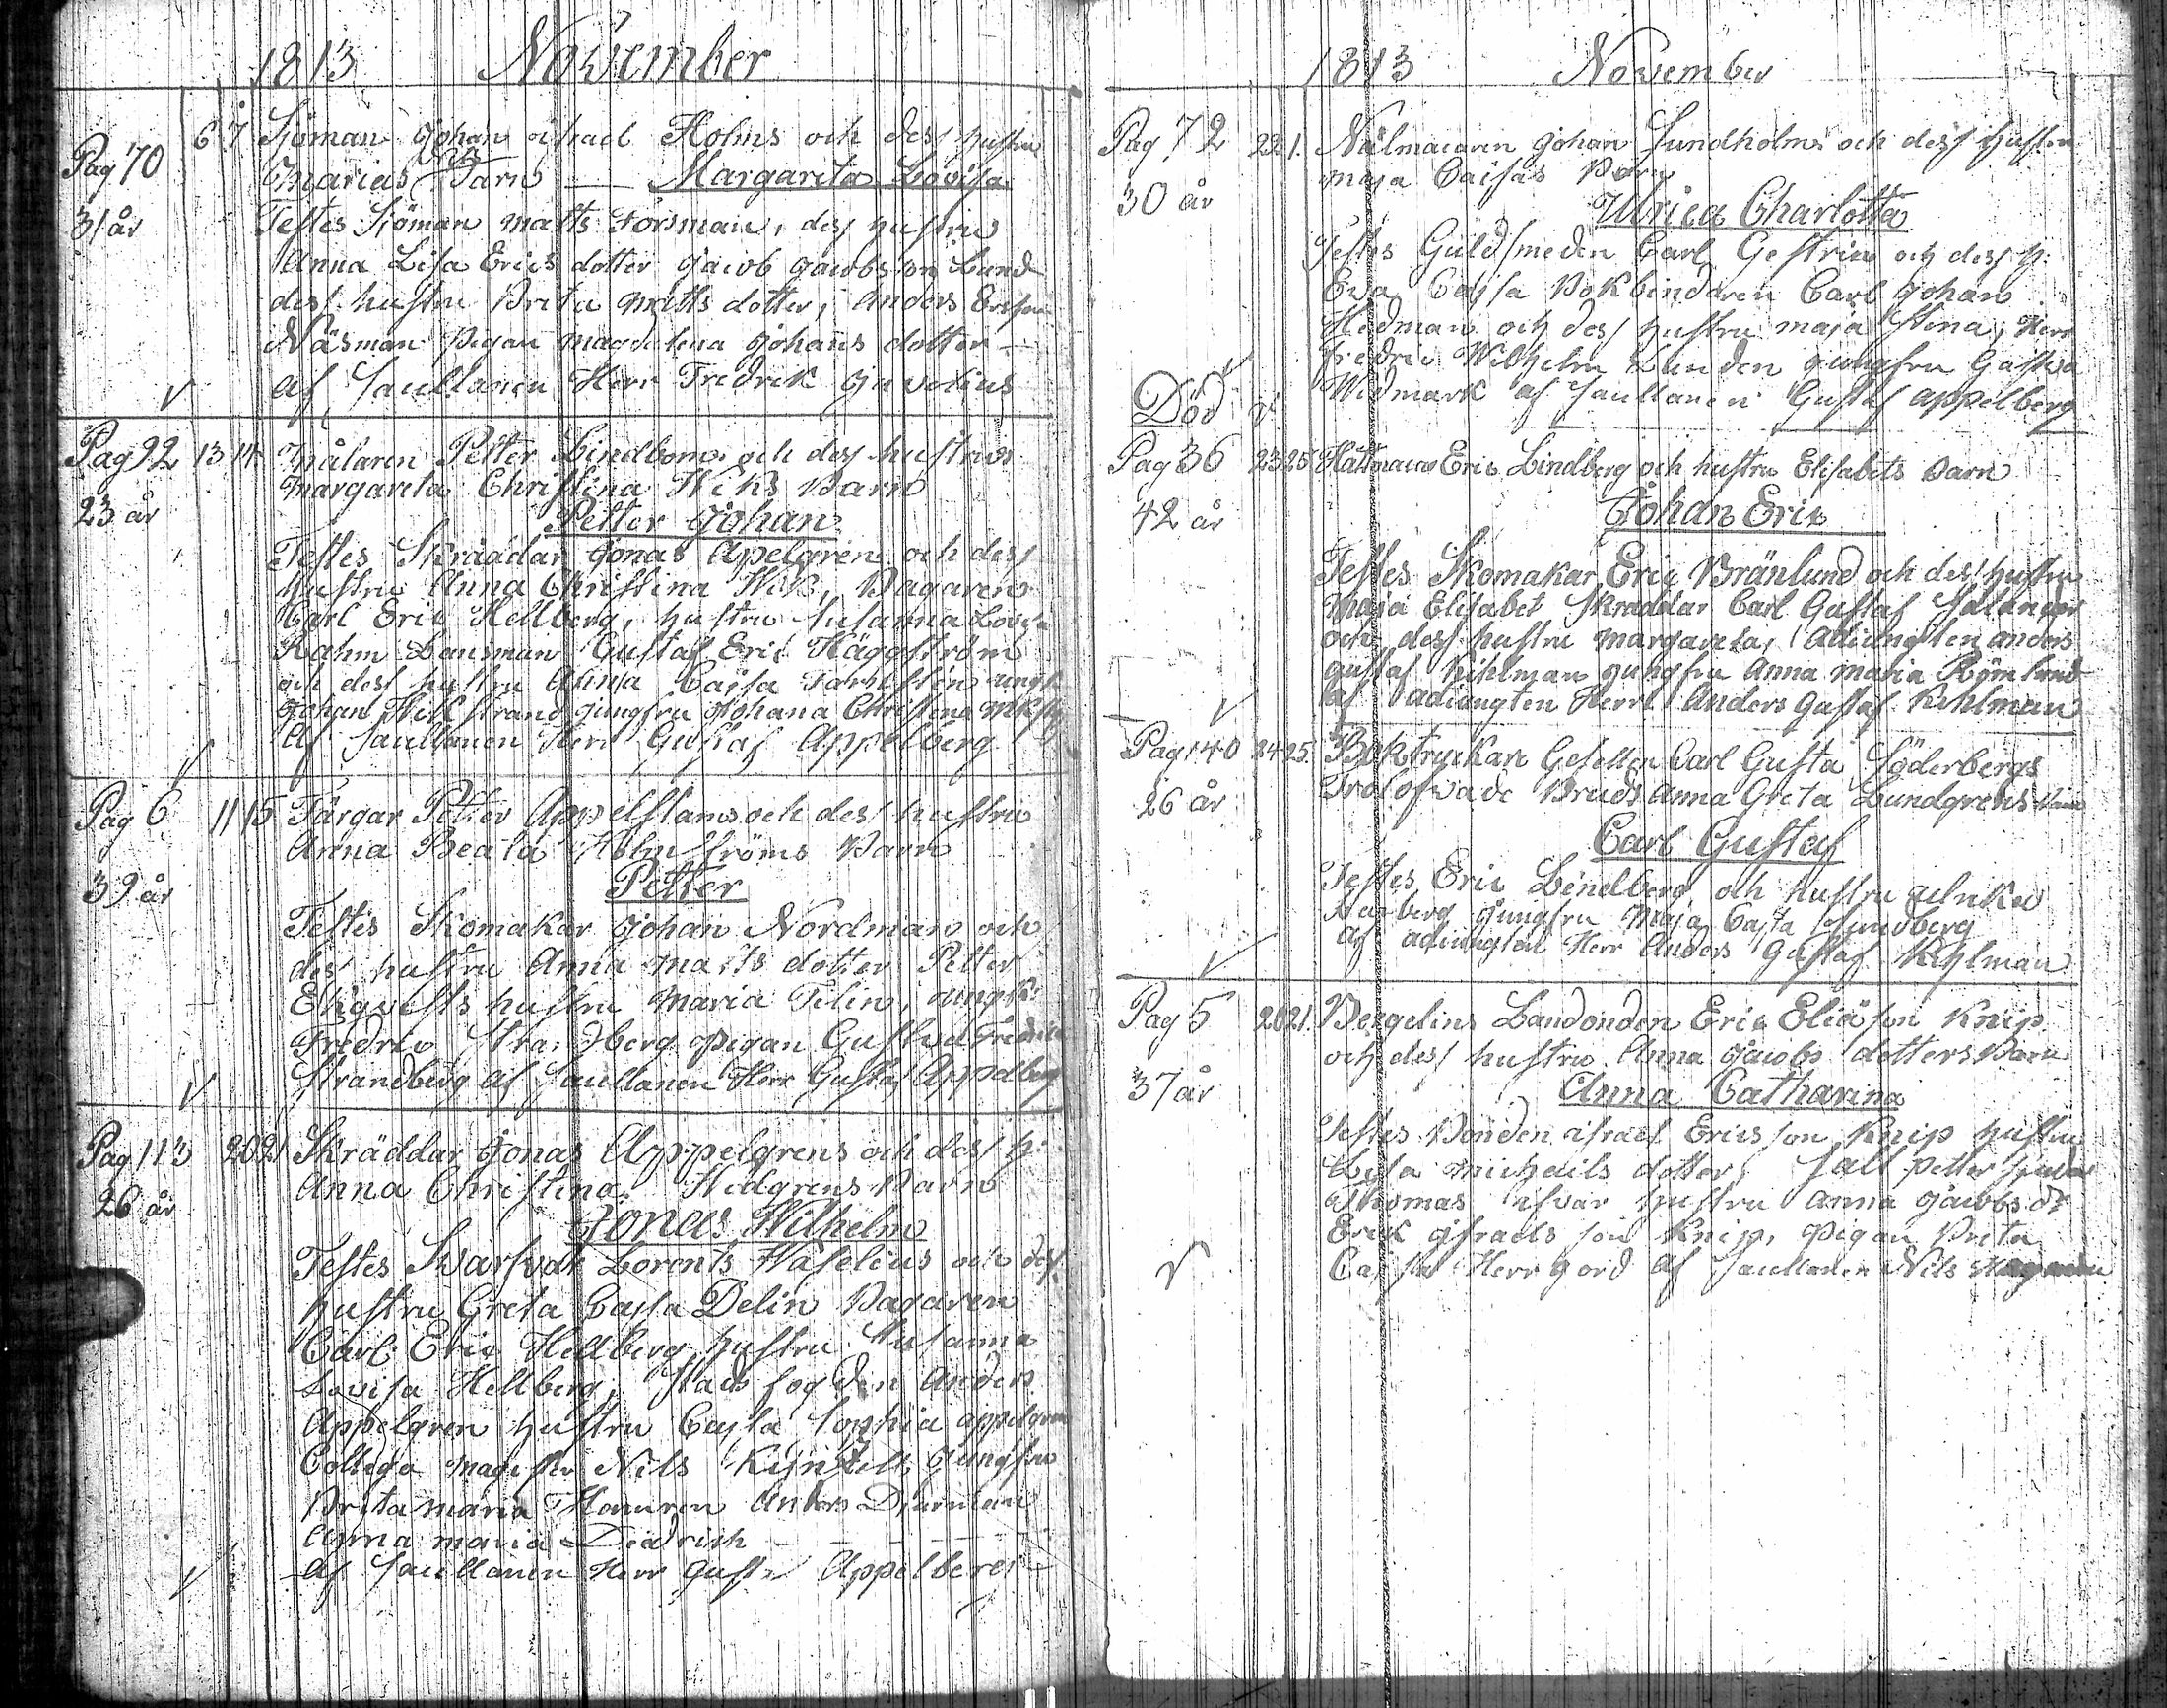 1813 November
Pag 70 6 7 Sjöman Johan ishael Holms och dess hustru
Marias Barn — Margareta Lovisa
31 år Testes Sjöman matts Forsman, dess hustru
Anna Lisa Erics dotter Jacob Jacobsson Lund
dess hustru Brita matts dotter, Anders Ersson
Näsman Pigan magdelena Johans dotter —
af Saccllanen Herr Fredrik
Pag 92 13 14 målaren Petter Lindboms och dess hustrus
margareta Christina Wiks Barn
23 år Petter Johan
Testes Skräddar Jonas Apelgren och dess
hustru Anna Christina Wik, Bagaren
Carl Eric Hellberg, hustru Susanna Lovisa
Rahm Lansman Gustaf Eric Häggström
och dess hustru Anna Cajsa ungk
Johan Wikstrand jungfru Johana Christina
af Sacellanen Herr Gustaf Appelberg
Pag 6 11 15 Färgar Petter Appelstams och dess hustru
Anna Beata Holmströms Barn
39 år Petter
Testes Skomakar Johan Nordman och
dess hustru Anna matts dotter Petter
hustru Maria Telin, ungk:
Fredric Strandberg pigan Gustava Fredrica
Strandberg af Sacellanen Herr Gustaf Appelberg
Pag 113 20 21 Skräddar Jonas Appelgrens och dess h:
Anna Christina Widgrens Barn
26 år Jonas Wilhelm
Testes Swarfvar Lorents Haselius och dess
hustru Greta Cajsa Delin Bagaren
Carl Eric Hellberg hustru Susanna
Lovisa Hellberg, Stads fogden Anders
Appelgren hustru Cajsa Sophia appelgren
Collega magister Nils Kijntell, Jungfru
Brita maria Hamren Anders Djurman
Anna maria Diedrich
af Sacellanen Herr Gustaf Appelberg
1813 November
Pag 72 22 1. Nålmacaren Johan Sundholms och dess hustru
maja Caisas Barn
30 år Ulrica Charlotta
Testes Guldsmeden Carl Gestrin och dess h:
Eva Cajsa Bokbindaren Carl Johan
Hedman och dess hustru maja Stina, Herr
Fredric Wilhelm Lunden jungfru Gustava
Widmark af Sacellanen Gustaf appelberg
Död
Pag 36 23 25 Hattmacar Eric Lindberg och hustru Elisabets Barn
42 år Johan Eric
Testes Skomakar Eric Bränlund och dess hustru
Maja Elisabet Skraddar Carl Gustaf
och dess hustru margareta, Adiungten anders
gustaf Kihlman jungfru Anna maria
af adiungten Herr Anders Gustaf Kihlman
Pag 140 24 25. Boktryckare Gesellen Carl Gusta Söderbergs
Trolofwade Bruds Anna Greta Lundgrens Barn
26 år Carl Gustaf
Testes Eric Lindberg och hustru ulrika
jungfru Maja Cajsa Sundberg
af adiungten Herr Anders Gustaf Kihlman
Pag 5 20 21. Bergelins Landbonden Eric Eliasson Knip
och dess hustru Anna Jacobs dotters Barn
37 år Anna Catharina
Testes Bonden ifrael Ericsson Knip hustru
Lisa michails dotter, Salt petter sjudar
Thomas hustru Anna Jacobs dr
Erick ifraels son Knip, pigan Brita
Cajsa Herrgord af Sacellanen Nils